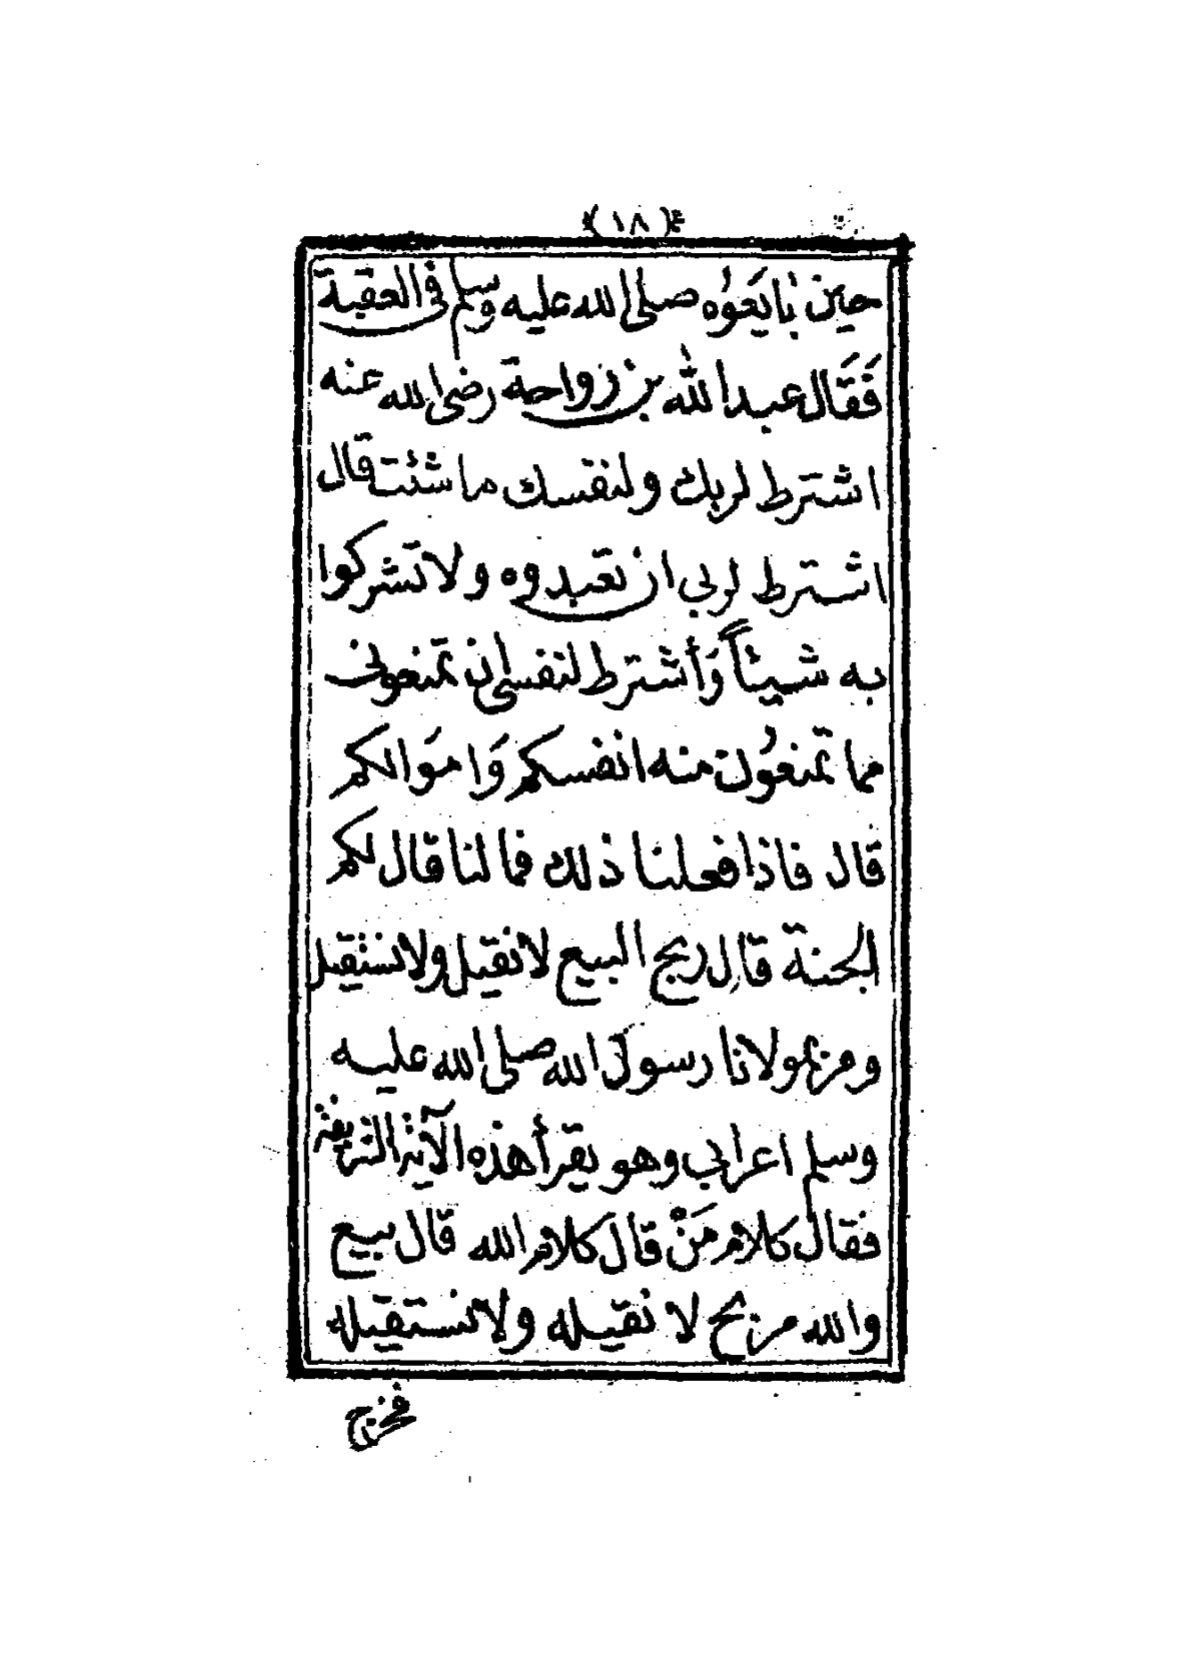 (١٨)
حين بايَعوُه صلى الله عليه وسلم في العقبة
فَقَال عبد الله بن رواحة رضى الله عنه
اشترط لربك ولنفسك ما شئت قال
اشترط لربي ان تعبدوه ولا تشركوا
به شيئاً وَأشترط لنفسي ان تمنعوني
مما تمنعُون منه انفسكم وَامَوالكم
قال فاذا فعلنا ذلك فما لنا قال لكم
الجنة قال ربح البيع لا نقيل ولا نستقيل
ومر بمولانا رسول الله صلى الله عليه
وسلم اعرابي وهو يقرأ هذه الآية الشريفة
فقال كلام مَنْ قال كلام الله قال بيع
والله مربح لا نقيله ولا نستقيله
فخرج